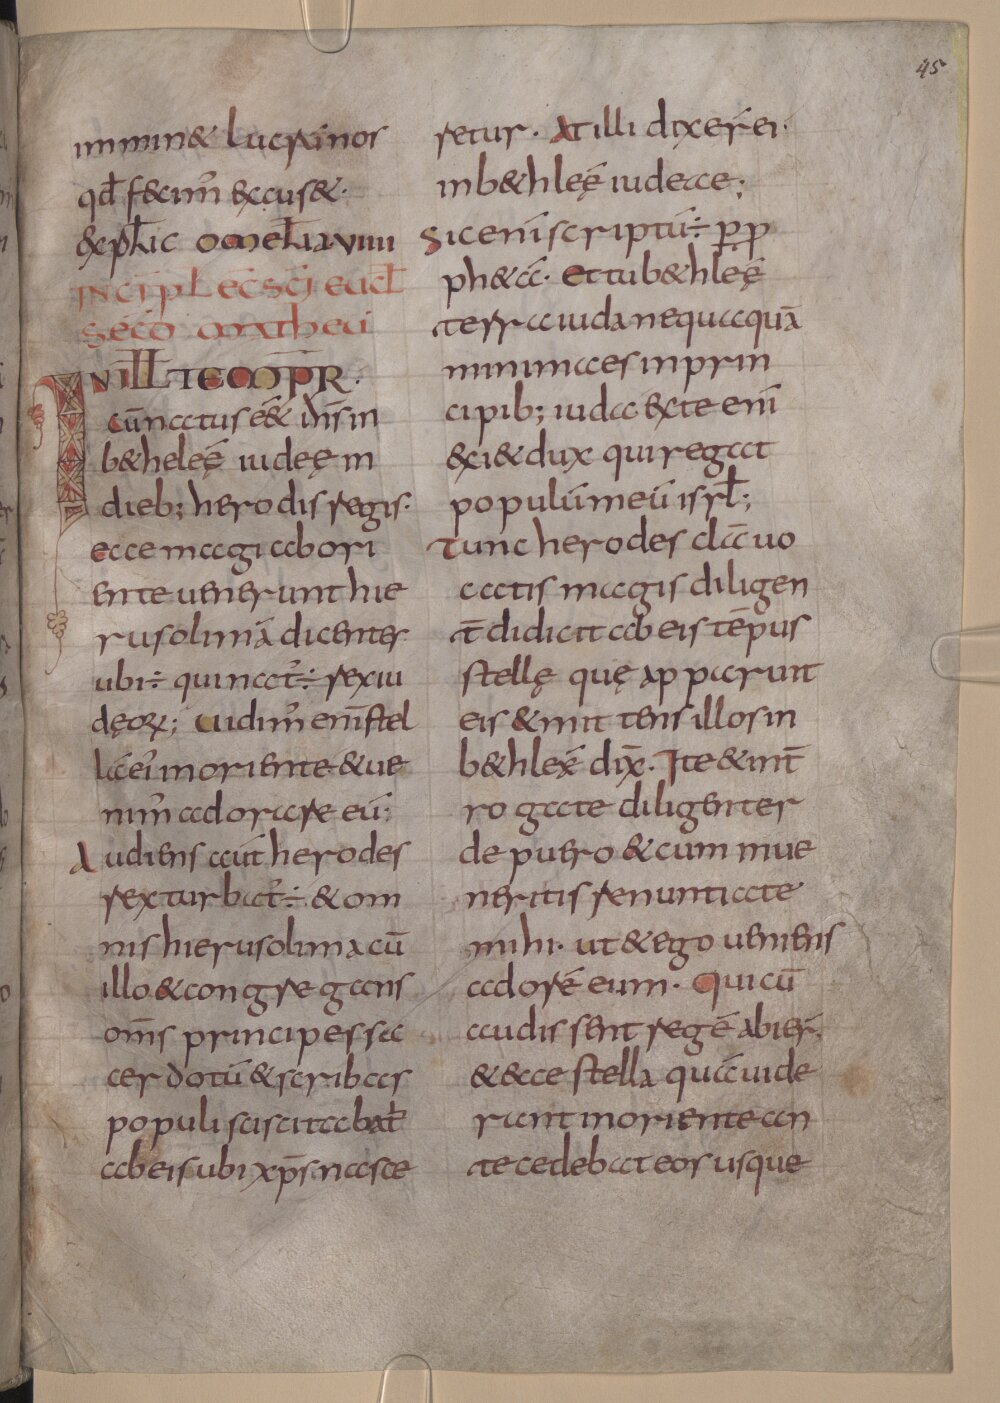 45
imminet lucrainos
qđ fecim̄ excuset·
explic̄ omelia viiii
incipł ec̄ sc̄i eucł
sec̄o matheū
IN ILL TEMPR·
cūnatus eet ihs̄ in
betheleē iudeę in
dieb; herodis regis·
ecce magi ab ori
ente uenerunt hie
rusolimā dicenter
ubi÷ qui nat᷒÷ rex iu
deoꝝ; uidim᷒ enī stel
lā ei᷒ in oriente & ue
nim᷒ adorare eū;
Audiens aut̄ herodes
rex turbat᷒÷ & om
nis hierusolima cū
illo & congregans
omīs principes sa
cerdotū & scribas
populi sciscitabat᷒
ab eis ubi xp̄s nasce
retur· At illi dixer̄ ei·
in bethleē iudeae;
Sic enī scriptū÷ p̱ p̱
phetā· Et tu bethleē
terra iuda nequaquā
minima es in prin
cipib; iuda ex te enī
exiet dux qui regat
populū meū isrł;
Tunc herodes clā uo
catis magis diligen
t̄ didicit ab eis tēpus
stellę quę apparuit
eis & mittens illos in
bethleē dix̄· Ite & int̄
rogate diligenter
de puero & cum inue
neritis renuntiate
mihi· ut & ego ueniens
adorē eum· Qui cū
audissent regē abier̄·
& ecce stella quā uide
rant in oriente an
tecedebat eos usque